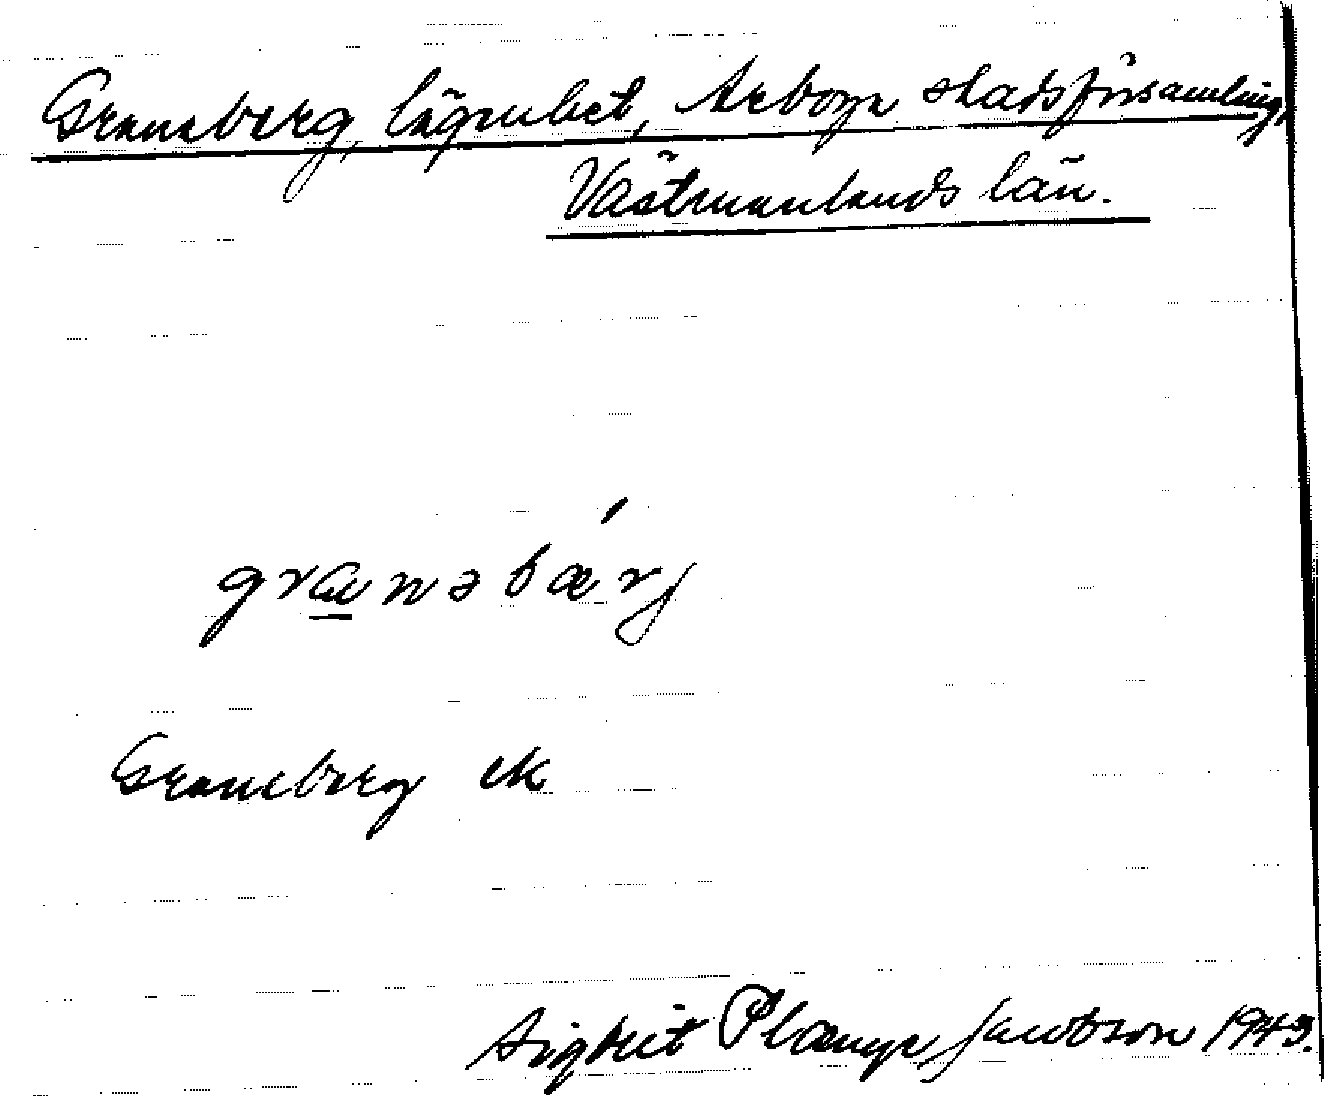 Graneberg, lägenhet, Arboga stadsförsamling,
Västmanlands län.
granəbǽrj
Graneberg ek
Sigbrit Plænge Jacobson 1943.